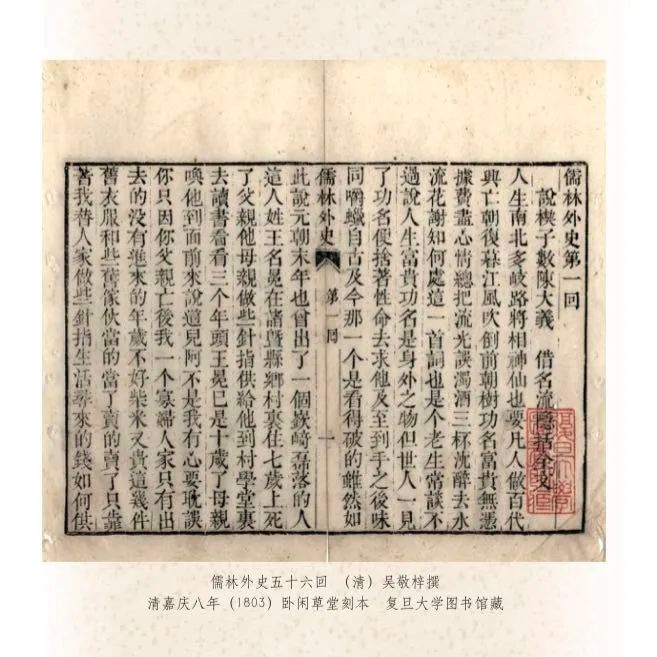 儒林外史第一回
說楔子敷陳大義　借名流隱括全文
人生南北多岐路將相神仙也要凡人做百代
興亡朝復暮江風吹倒前朝樹功名富貴無憑
據費盡心情總把流光誤濁酒三杯沈醉去水
流花謝知何處這一首詞也是个老生常談不
過說人生富貴功名是身外之物但世人一見
了功名便捨著性命去求他及至到手之後味
同嚼蠟自古及今那一个是看得破的雖然如
儒林外史　第一回　一
此說元朝末年也曾出了一個嶔崎磊落的人
這人姓王名冕在諸暨縣鄉村裏住七歲上死
了父親他母親做些針指供給他到村學堂裏
去讀書看看三个年頭王冕已是十歲了母親
喚他到面前來說道兒阿不是我有心要躭誤
你只因你父親亡後我一个寡婦人家只有出
去的沒有進來的年歲不好柴米又貴這幾件
舊衣服和些舊傢伙當的當了賣的賣了只靠
著我替人家做些針指生活尋來的錢如何供
儒林外史五十六回　（清）吴敬梓撰
清嘉庆八年（1803）卧闲草堂刻本　复旦大学图书馆藏